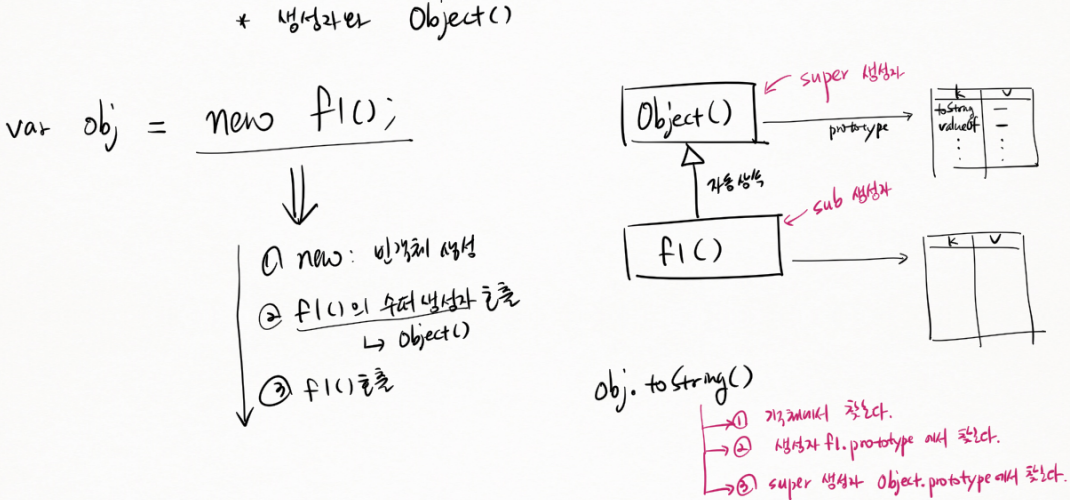 * 생성자와 Object()
var obj = new f1();
① new: 빈객체 생성
② f1()의 수퍼 생성자 호출
↳ Object()
③ f1() 호출
super 생성자
Object()
prototype
K V
toString —
valueOf —
자동 상속
sub 생성자
f1()
K V
obj.toString()
① 기 객체에서 찾는다.
② 생성자 f1.prototype 에서 찾는다.
③ super 생성자 Object.prototype에서 찾는다.